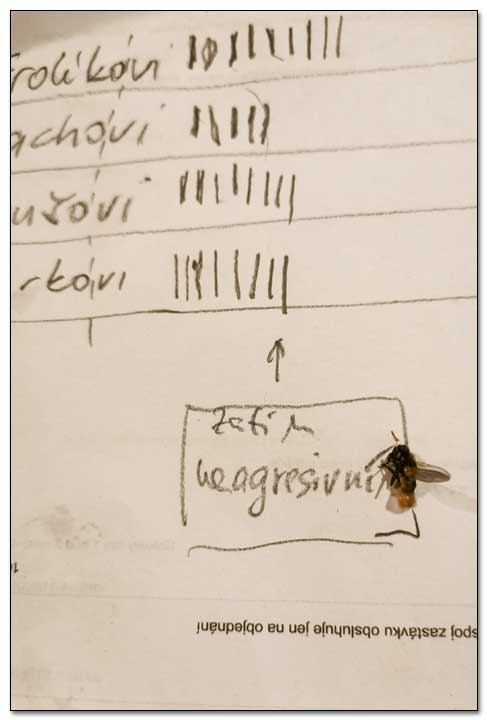 rolíkovi
achovi
užovi
rkovi
Zatím
neagresivní
spoj zastávku obsluhuje jen na objednání